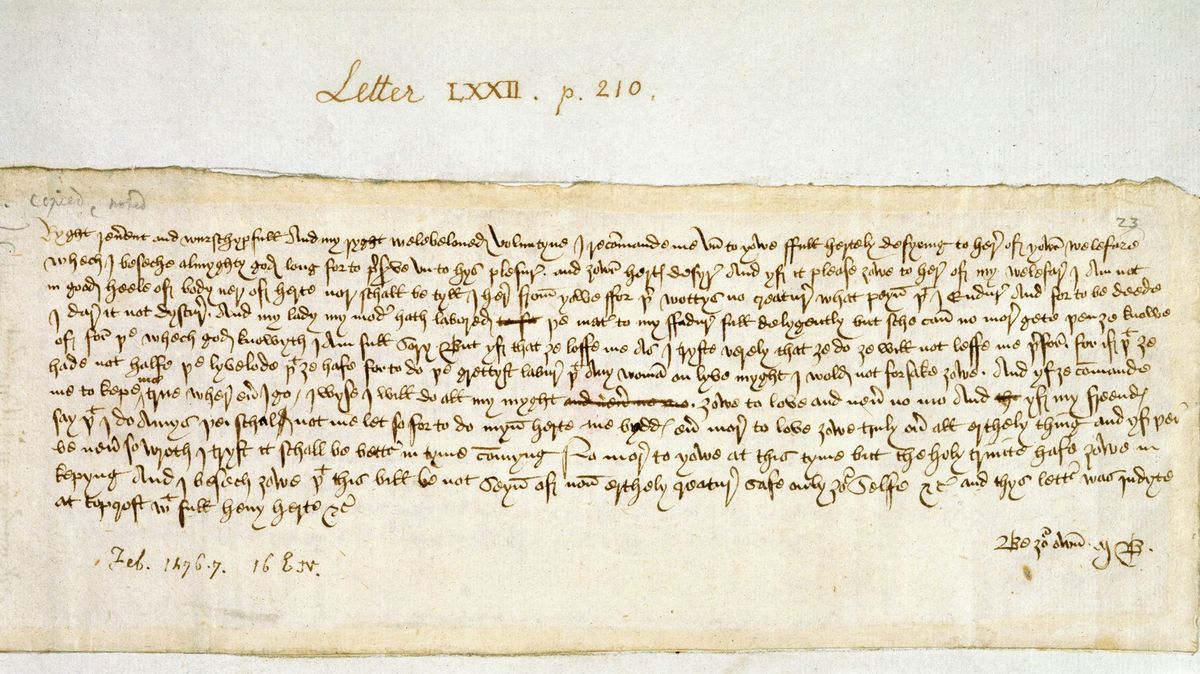 Letter LXXII. p. 210.
copied noted
23
Ryght reu'ent and wurschypfull And my ryght welebeloued voluntyne I recomande me vn to yowe ffull hertely desyring to her' of yowr welefare
whech I beseche almyghty god long for to p'serve vn to hys plesur' and zowr hert' desyr' And yf it please zowe to her' of my welefar' I Am not
in good heele of body ner of herte nor schall be tyll I her' from yowe ffor þ' wottys no creatur' what peyn þ^t I Endur' And for to be deede
I dar' it not dyscur' And my lady my mod' hath labored to þe mat' to my ffadur full delygently but sche can no mor' gete þen ze knowe
of for þe whech god knowyth I Am full sory But yf that ze loffe me As I tryste verely that ze do ze will not leffe me þ'for' for if þ^t ze
hade not halfe þe lyvelode þ^t ze hafe for to do þe grettyst labur þ^t Any woman on lyve myght I wold not forsake zowe And yf ze comande
me to kepe me trwe wher eu' I go I wyse I will do all my myght zowe to love and neu' no mo And yf my freend'
say þ^t I do Amys þei schal not me let so for to do myn herte me bydd' eu' mor' to love zowe truly ou' all erthely thing and yf þei
be neu' so wroth I tryst it schall be bett' in tyme comyng No mor' to yowe at this tyme but the holy trinite hafe zowe in
kepyng And I besech zowe þ^t this bill be not seyn of non erthely creatur' safe only zo^r selfe &c and thys lett' was indyte
at topcroft w^t full heuy herte &c
Be zo^r own M B.
Feb. 1476.7. 16 E IV.